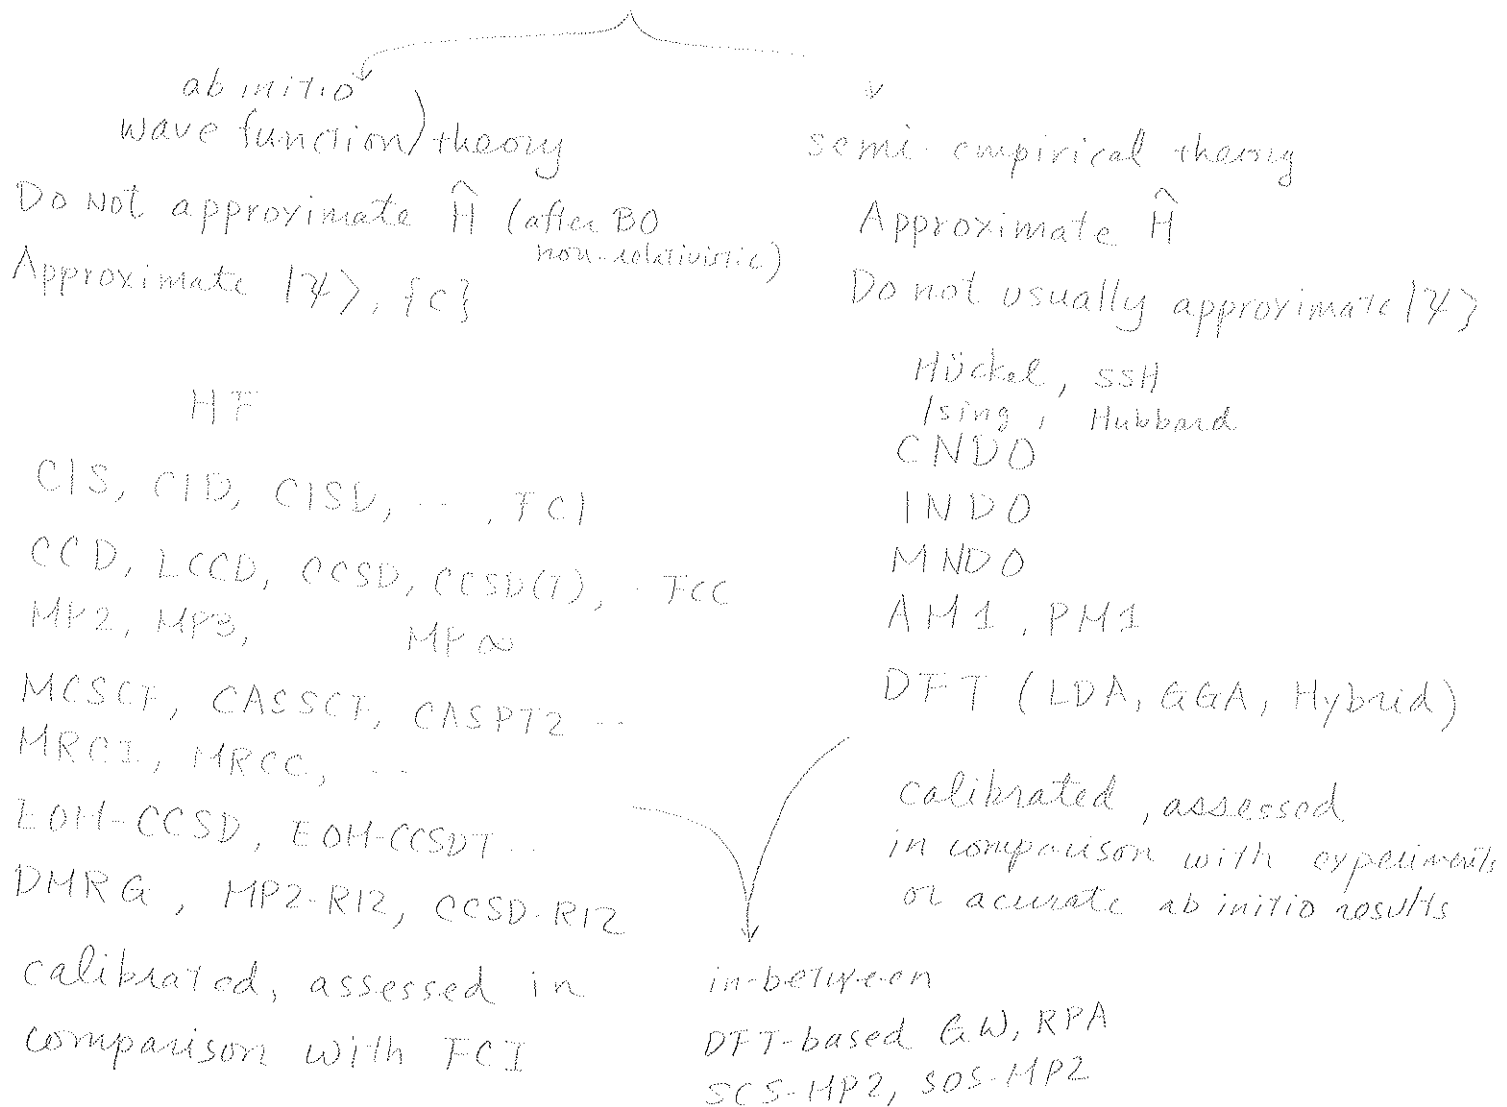 ab initio
wave function) theory
Do Not approximate Ĥ (after BO
non-relativistic)
Approximate |Ψ⟩, {C}
HF
CIS, CID, CISD, ·· , FCI
CCD, LCCD, CCSD, CCSD(T), · FCC
MP2, MP3, MP∞
MCSCF, CASSCF, CASPT2 ··
MRCI, MRCC, ··
EOM-CCSD, EOM-CCSDT ··
DMRG, MP2-R12, CCSD-R12
calibrated, assessed in
comparison with FCI
semi-empirical theory
Approximate Ĥ
Do not usually approximate |Ψ⟩
Hückel, SSH
Ising, Hubbard
CNDO
INDO
MNDO
AM1, PM1
DFT (LDA, GGA, Hybrid)
calibrated, assessed
in comparison with experiments
or acurate ab initio results
in-between
DFT-based GW, RPA
SCS-MP2, SOS-MP2